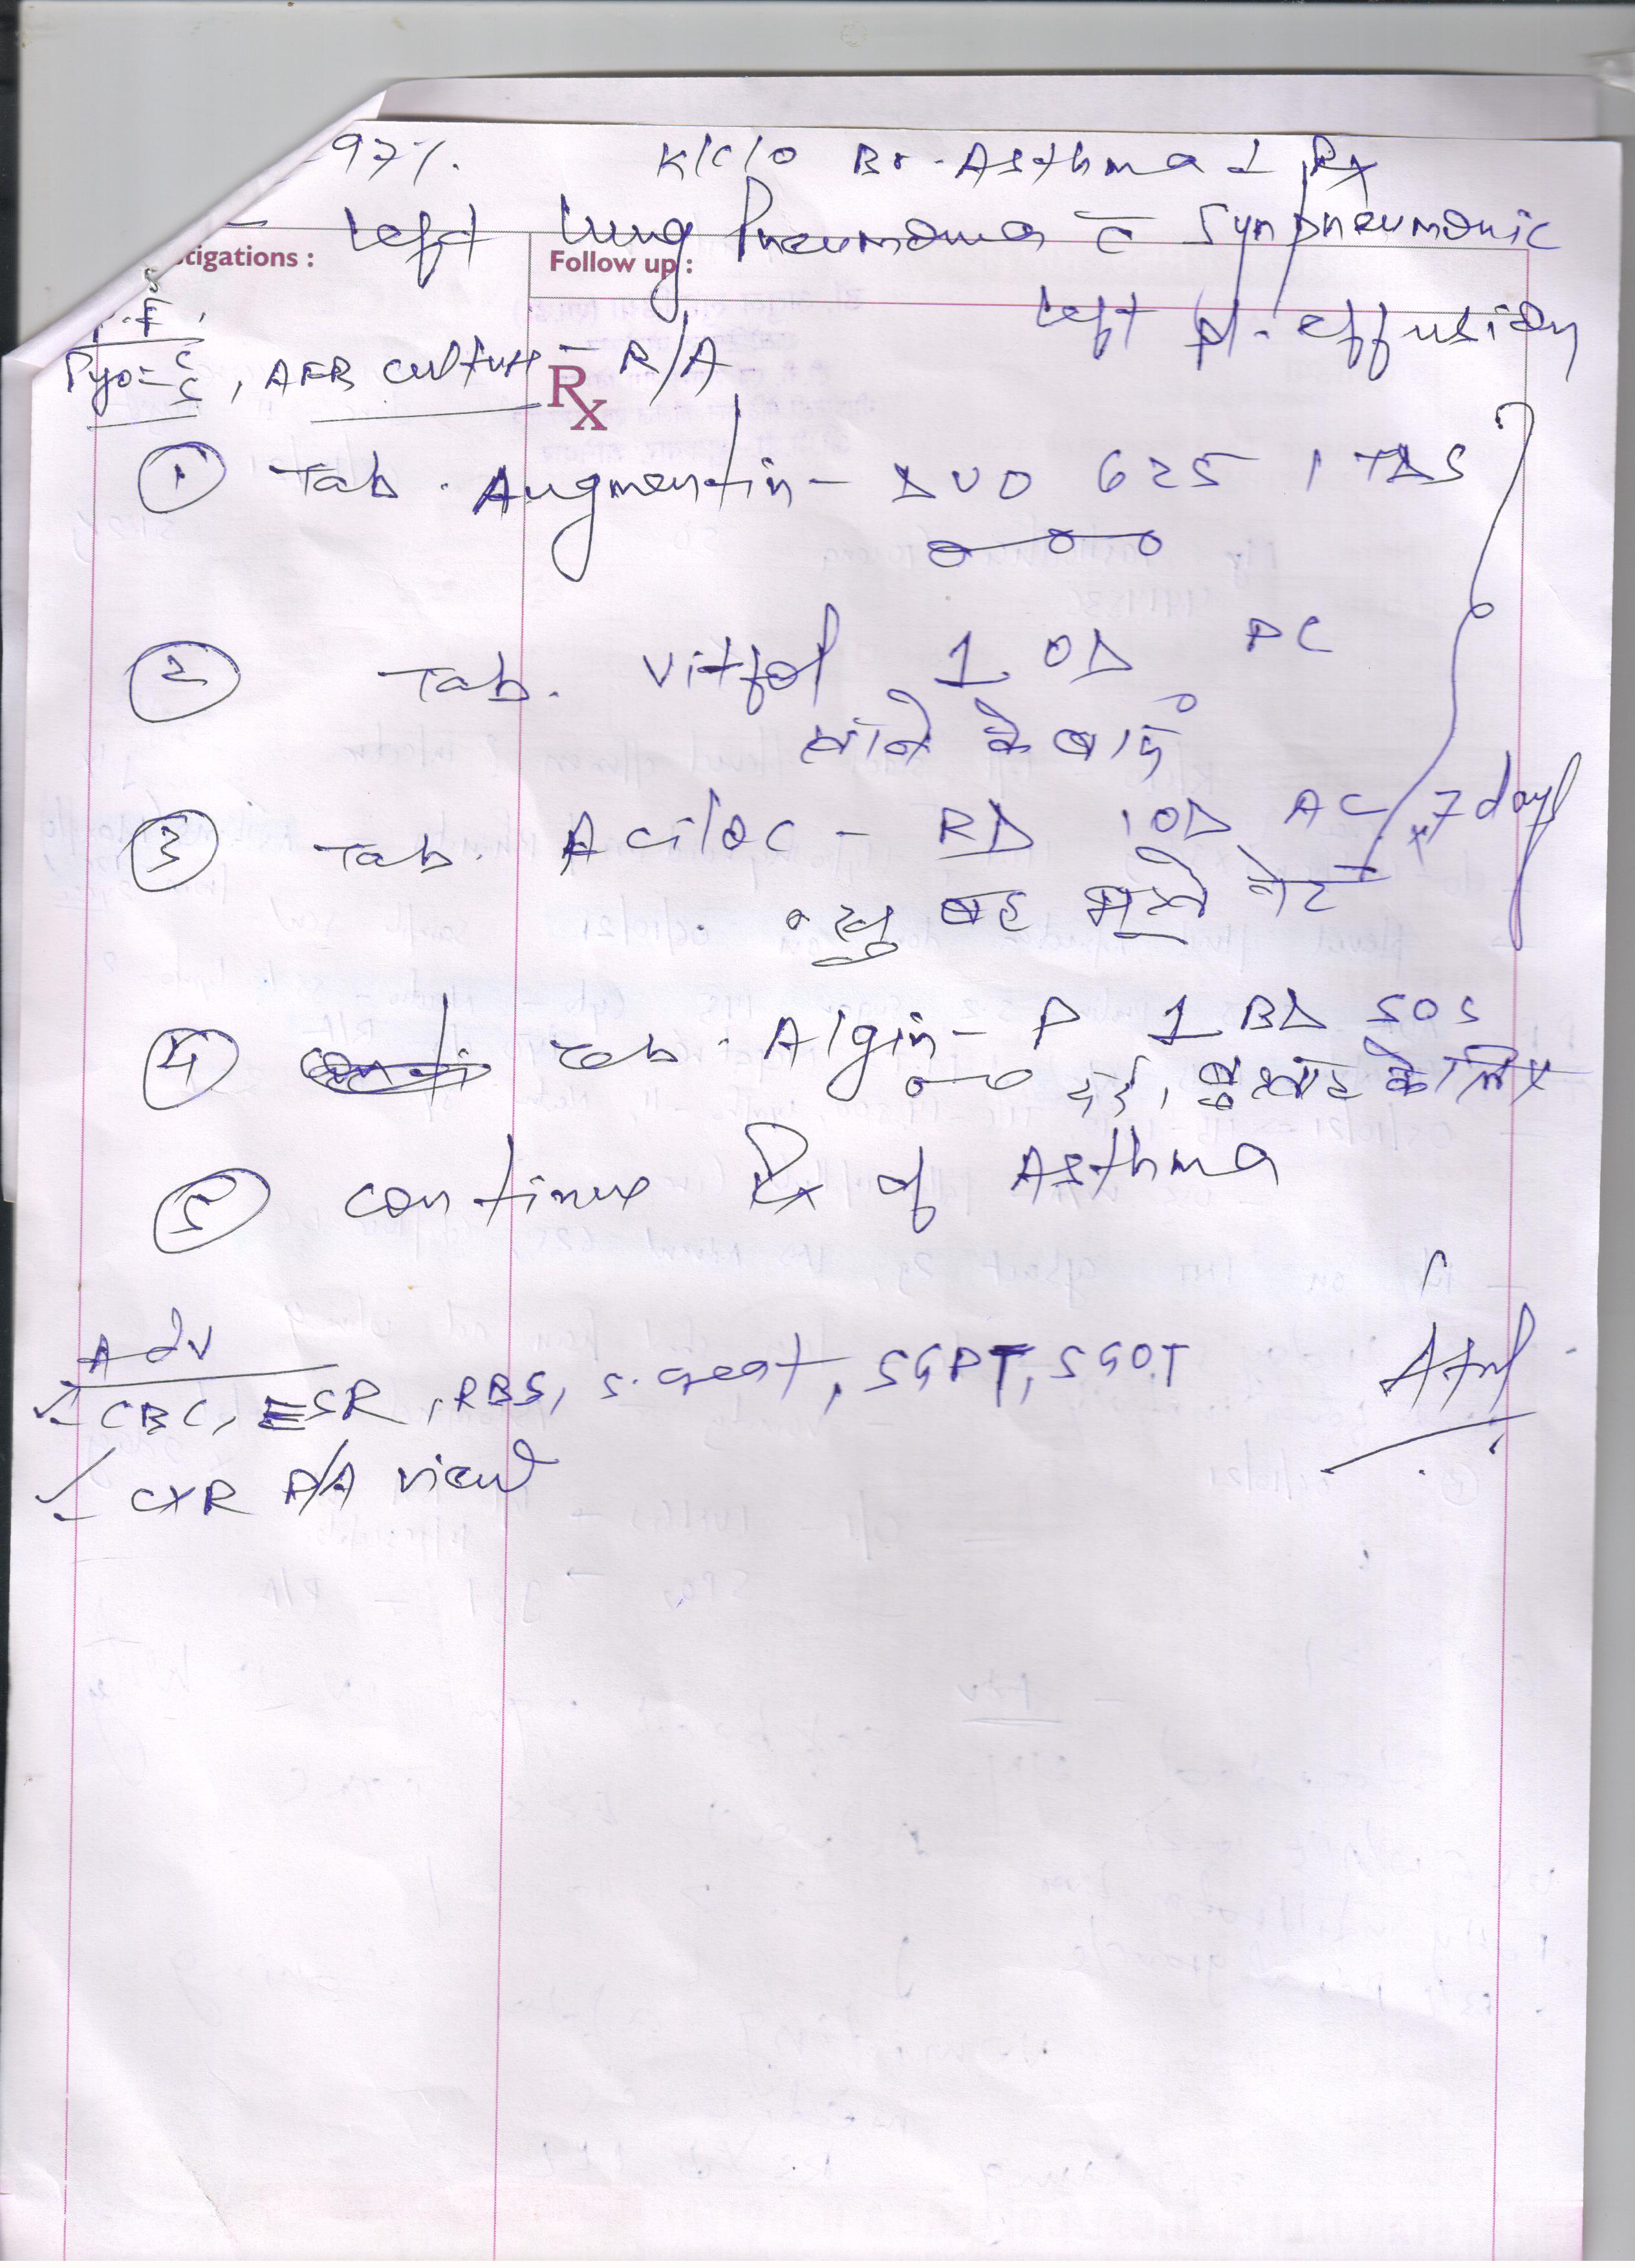 -97%. K/C/O Br-Asthma 1 Rx
- Left lung Pneumonia c̄ Synpneumonic
tigations : Follow up :
left pl. effusion
P.F.
Pyo= C/S, AFB culture - R/A
Rx
① Tab. Augmentin- DUO 625 1 TDS
② Tab. Vitfol 1 OD PC
खाने के बाद
③ Tab. Aciloc - RD 1 OD AC x 7 days
सुबह भूखे पेट
④ Tab. Algin-P 1 BD SOS
दर्द, बुखार के लिए
⑤ continue Rx of Asthma
Adv
- CBC, ESR, RBS, S.creat, SGPT, SGOT
- CXR P/A view